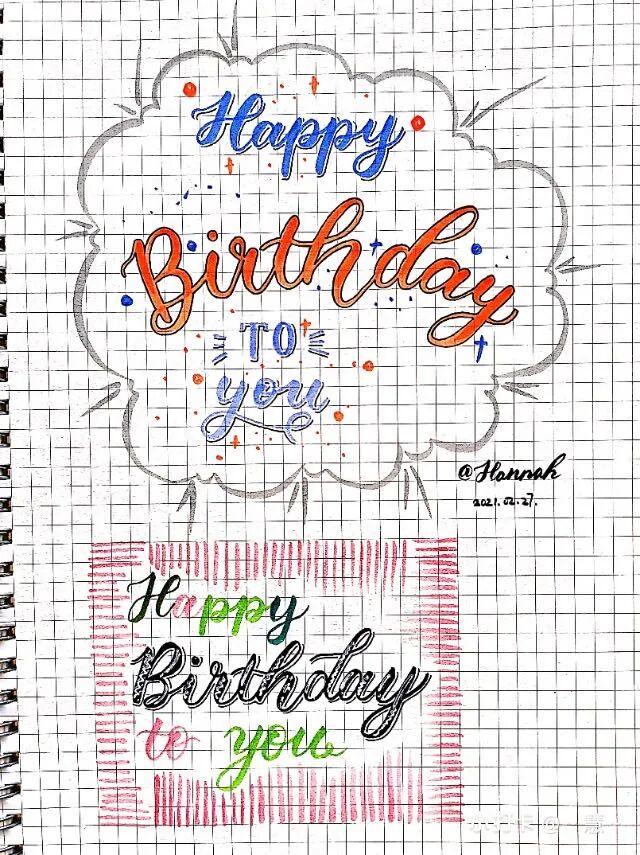 Happy
Birthday
TO
you
@Hannah
2021.02.27.
Happy
Birthday
to you